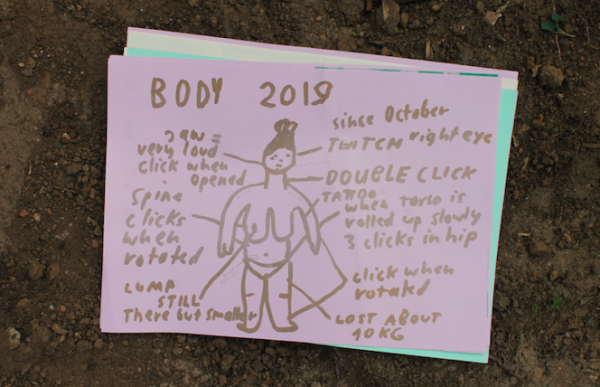 BODY 2019
Jaw =
very loud
click when
opened
since October
TWITCH right eye
DOUBLE CLICK
TATTOO
Spine
clicks
when
rotated
when torso is
rolled up slowly
3 clicks in hip
LUMP
STILL
There but smaller
click when
rotated
LOST ABOUT
10KG